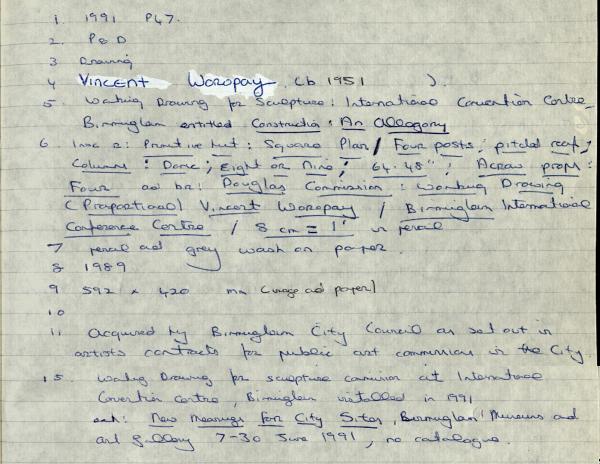 1 1991 P47.
2. P & D
3 Drawing
4 VINCENT WOROPAY (b 1951 ).
5. Working Drawing for Sculpture: International Convention Centre,
Birmingham entitled Construction: An Allegory
6 Insc r: Primitive Hut: Square Plan / Four posts; pitched roof;
Columns: Doric; Eight or Nine; 64.48"; Acrow props:
Four and br: Douglas Commission: Working Drawing
(Proportional) Vincent Woropay / Birmingham International
Conference Centre / 8 cm = 1' in pencil
7 pencil and grey wash on paper.
8 1989
9 592 x 420 mm (image and paper)
10
11 Acquired by Birmingham City Council as set out in
artists contracts for public art commissions in the City.
15. Working Drawing for sculpture commission at International
Convention Centre, Birmingham installed in 1991
exh: New Meanings for City Sites, Birmingham Museums and
Art Gallery 7-30 June 1991, no catalogue.